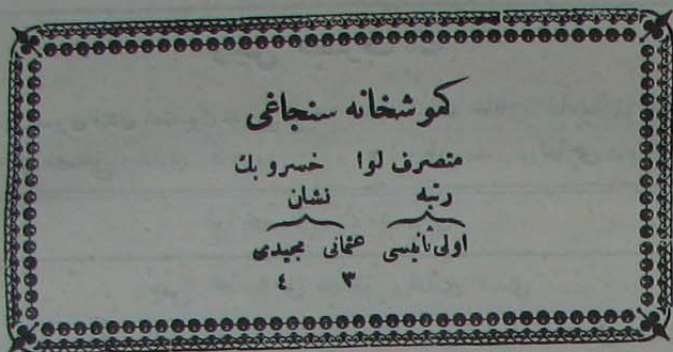 كموشخانه سنجاغی
متصرف لوا خسرو بك
رتبه نشان
اولی ثانیسی عثمانی مجیدی
٣ ٤